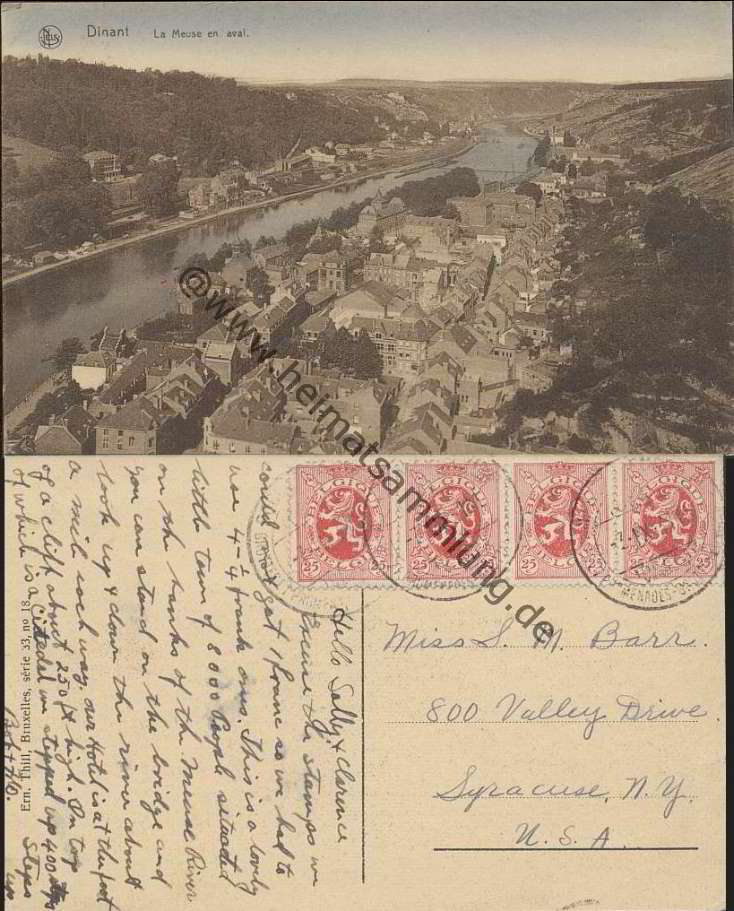 Dinant La Meuse en aval.
@www.heimatsammlung.de
BELGIQUE
BELGIË
25 25
BELGIQUE
BELGIË
25 25
BELGIQUE
BELGIË
25 25
BELGIQUE
BELGIË
25 25
Hello Sally & Clarence
Excuse the stamps we
could get 1 franc so we had to
use 4 - 1/4 frank ones. This is a lovely
little town of 8000 People situated
on the banks of the Meuse River
You can stand on the bridge and
look up & down the river about
a mile each way. Our Hotel is at the foot
of a cliff about 250 ft high. On top
of which is a Citedel we stepped up 400 steps
Steps
up
Ern. Thill, Bruxelles, série 33, nº 18
Miss S. M. Barr.
800 Valley Drive
Syracuse, N.Y.
U.S.A.